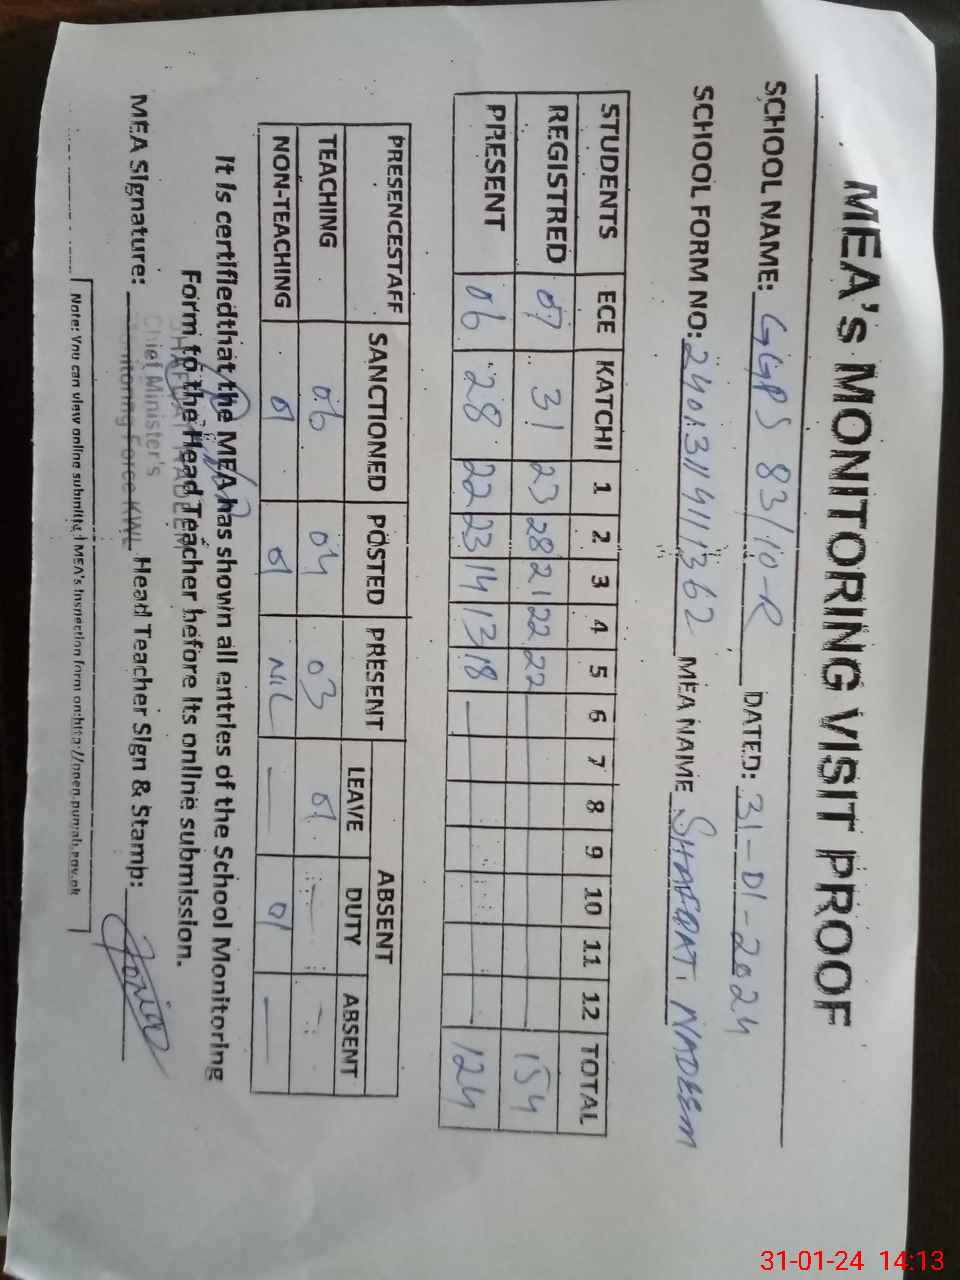 MEA's MONITORING VISIT PROOF
SCHOOL NAME: GGPS 83/10-R DATED: 31-01-2024
SCHOOL FORM NO: MEA NAME SHAFQAT NADEEM
STUDENTS ECE KATCHI 1 2 3 4 5 6 7 8 9 10 11 12 TOTAL
REGISTRED 07 31 23 28 21 22 22 154
PRESENT 06 28 22 23 14 13 18 124
PRESENCESTAFF SANCTIONED POSTED PRESENT ABSENT
LEAVE DUTY ABSENT
TEACHING 06 04 03 01
NON-TEACHING 01 01 NIL — 01 —
It is certifiedthat the MEA has shown all entries of the School Monitoring
Form to the Head Teacher before its online submission.
SHAFQAT NADEEM
Chief Minister's
Monitoring Force KWL
MEA Signature: Head Teacher Sign & Stamp:
Note: You can view online submitted MEA's Inspection form on:
31-01-24 14:13